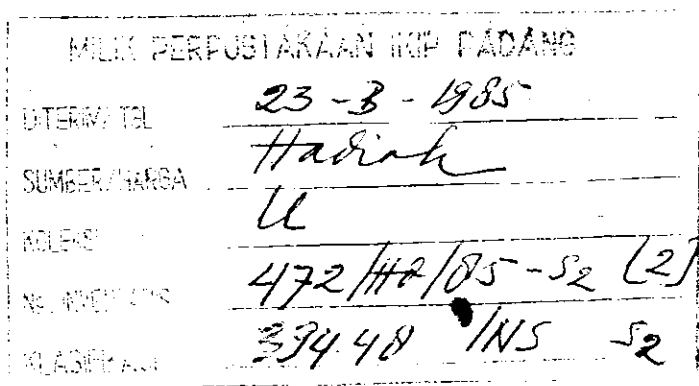 MILIK PERPUSTAKAAN IKIP PADANG
DITERIMA TGL 23-3-1985
SUMBER/HARGA Hadiah
KOLEKSI U
No. INVENTARIS 472/Hd/85-S2 (2)
KLASIFIKASI 394.48 INS S2